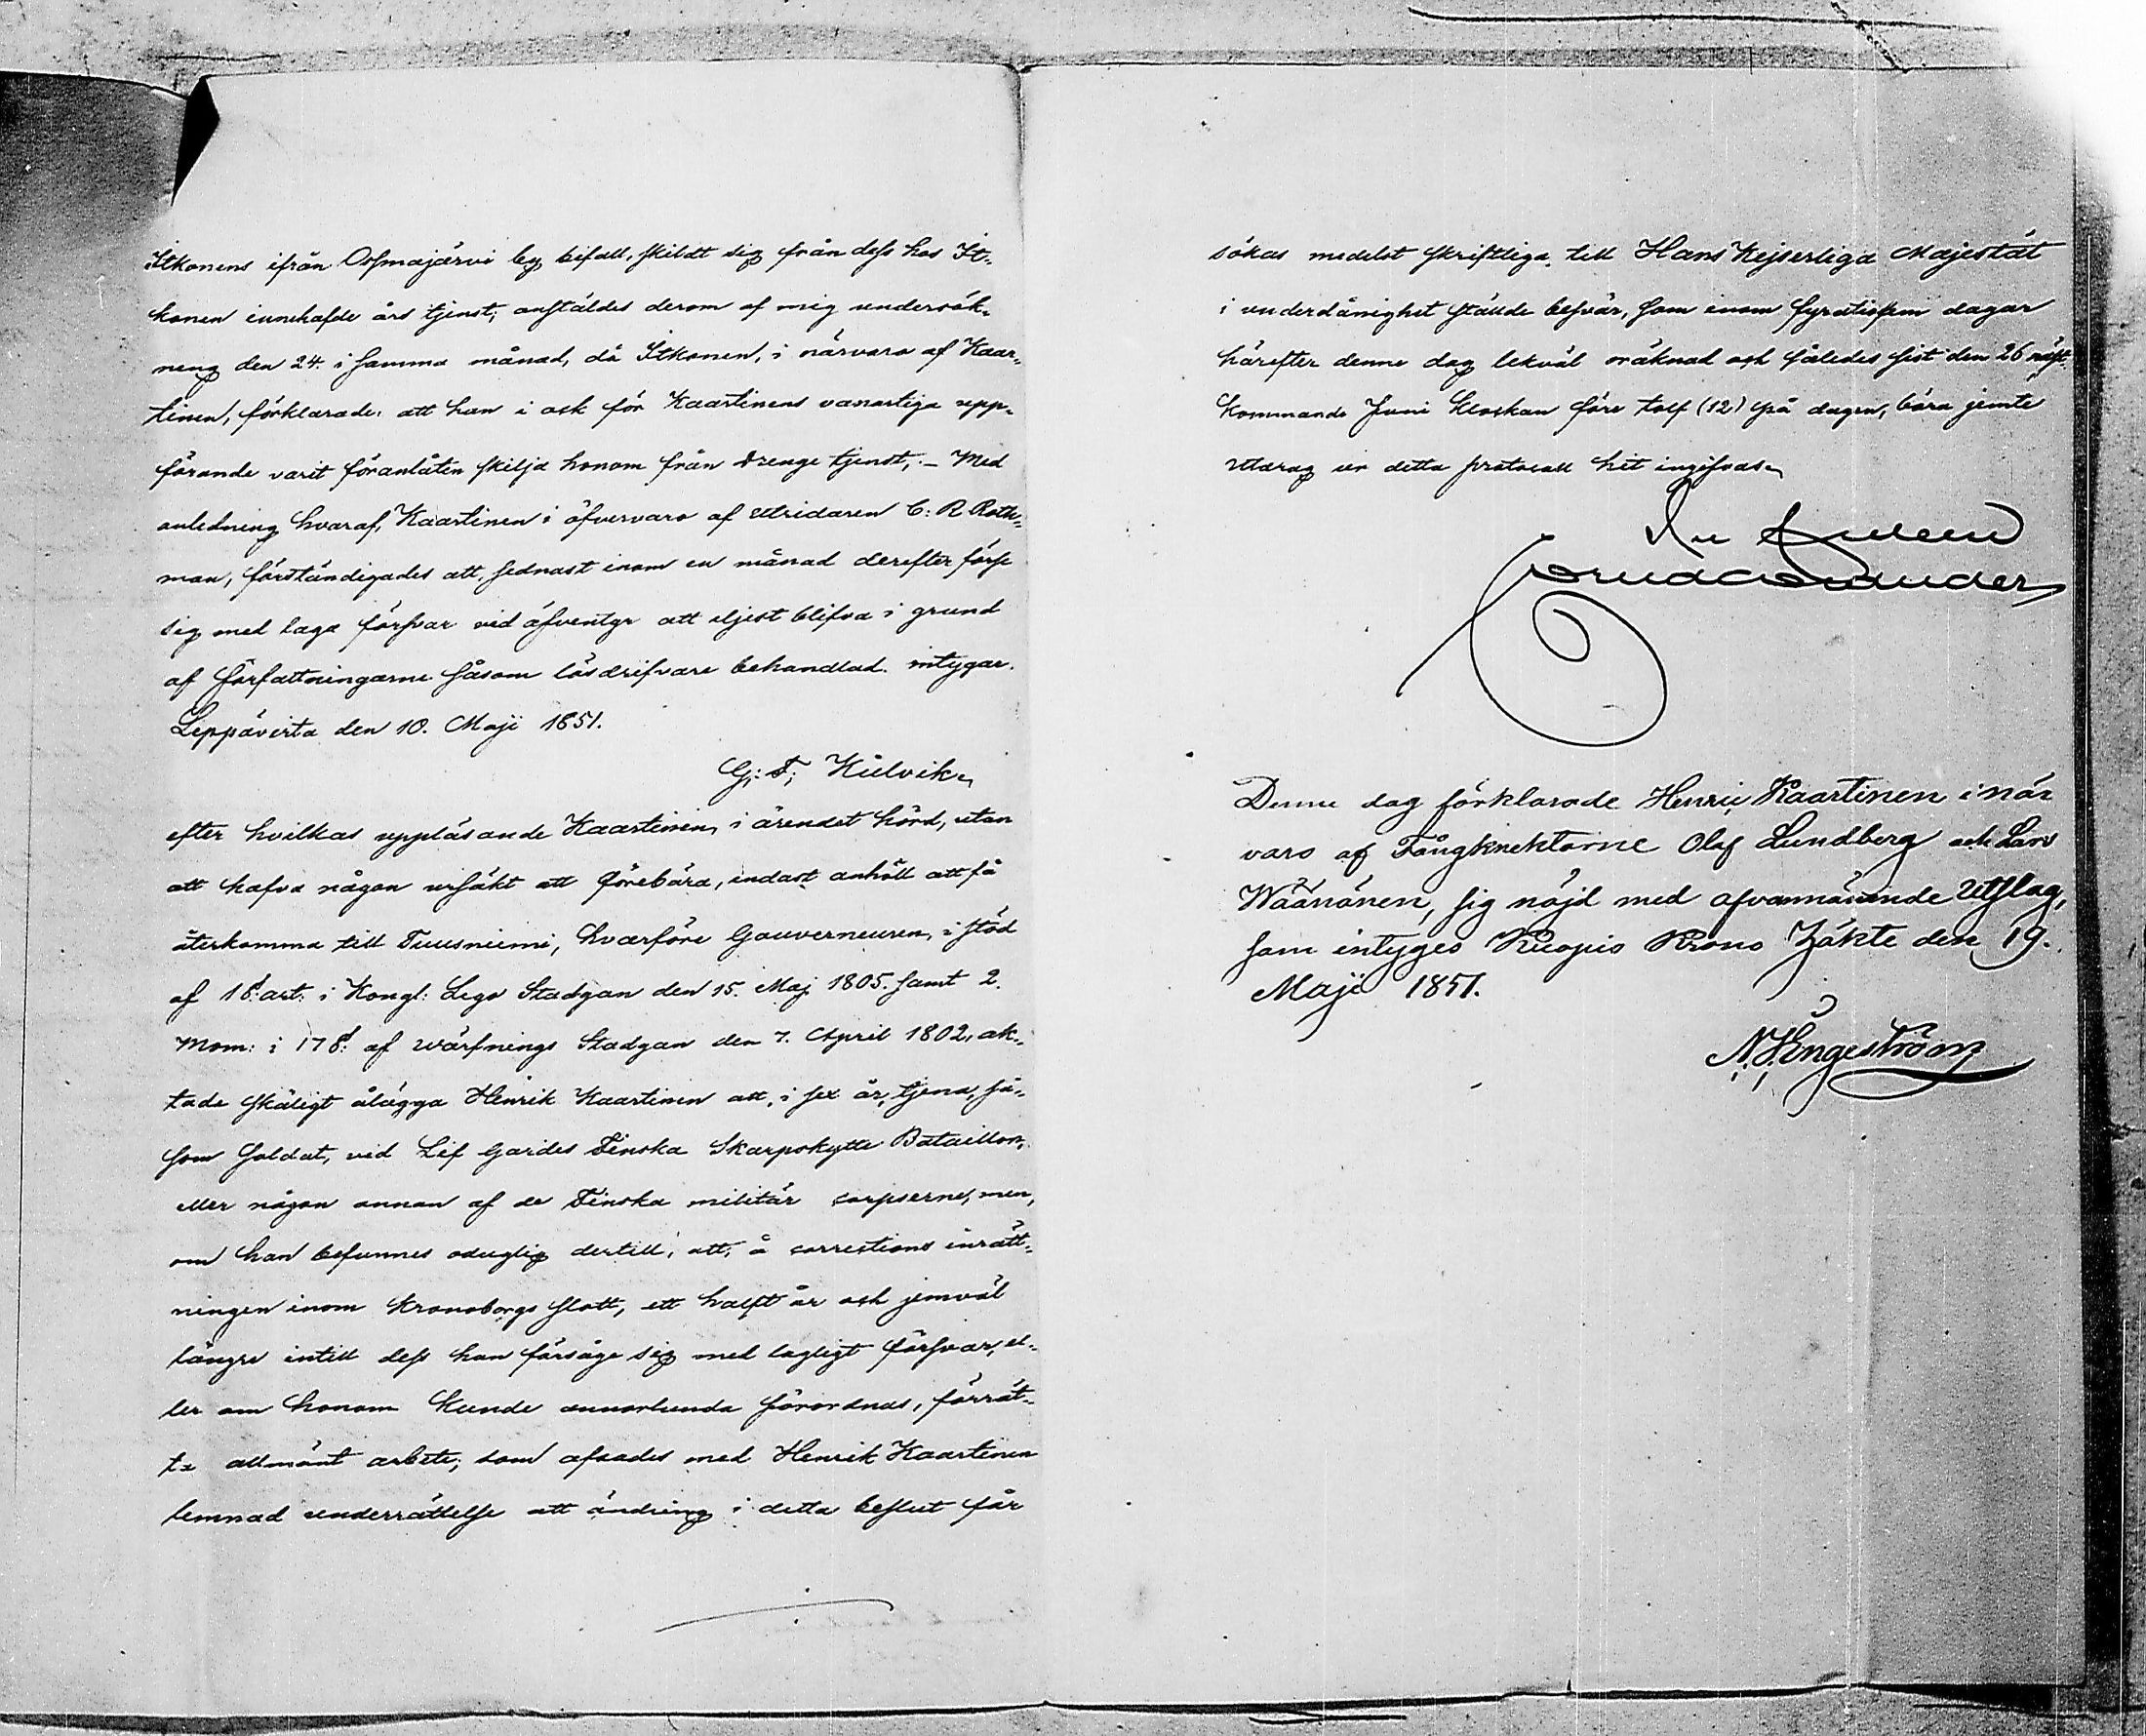 Itkonens ifrån Ossmajärvi by bifall, skildt sig från dess hos It-
konen innehafde års tjenst; anstäldes derom af mig undersök-
ning den 24. i samma månad, då Itkonen, i närvaro af Kaar-
tinen, förklarade: att han i ock för Kaartinens vanartiga upp-
förande varit föranlåten skilja honom från drenge tjenst;. - Med
anledning hvaraf, Kaartinen i öfvervaro af Utridaren C: R Roth-
man, förständigades att, sednast inom en månad derefter förse
sig med laga försvar vid äfventyr att eljest blifva i grund
af författningarne såsom lösdrifvare behandlad. intygar.
Leppävirta den 10. Maji 1851.
G: F; Kiilvik
efter hvilkas uppläsande Kaartinen, i ärendet hörd, utan
att hafva någon ursäkt att förebära, endast anhöll att få
återkomma till Tuusniemi, hvarföre Gouverneuren, i stöd
af 18: art: i Kongl: Lego Stadgan den 15. Maj 1805. samt 2.
Mom: i 17 §: af Värfnings Stadgan den 7. April 1802, ak-
tade skäligt ålägga Henrik Kaartinen att, i sex år, tjena, så-
som Soldat, vid Lif Gardes Finska Skarpskytte Bataillon,
eller någon annan af de Finska militär corpserne, men,
om han befunnes oduglig dertill, att, å corrections inrätt-
ningen inom Kronoborgs slott, ett halft år och jemväl
längre intill dess han försåge sig med lagligt försvar, el-
ler om honom kunde annorlunda förordnas, förrät-
ta allmänt arbete; som afsades med Henrik Kaartinen
lemnad underrättelse att ändring i detta beslut får
sökas medelst skriftliga, till Hans Kejserliga Majestät
i underdånighet stälde besvär, som inom fyratiofem dagar
härefter denne dag likväl oräknad och således sist den 26 näst-
kommande Juni klockan före tolf (12) på dagen, böra jemte
utdrag ur detta protocoll hit ingifvas.
Denne dag förklarade Henric Kaartinen i när
varo af Fångknektarne Olof Lundberg och Lars
Wäänänen, sig nöjd med ofvannämnde Utslag,
som intyges Kuopio Krono Häkte den 19.
Maji 1851.
N. Engeström